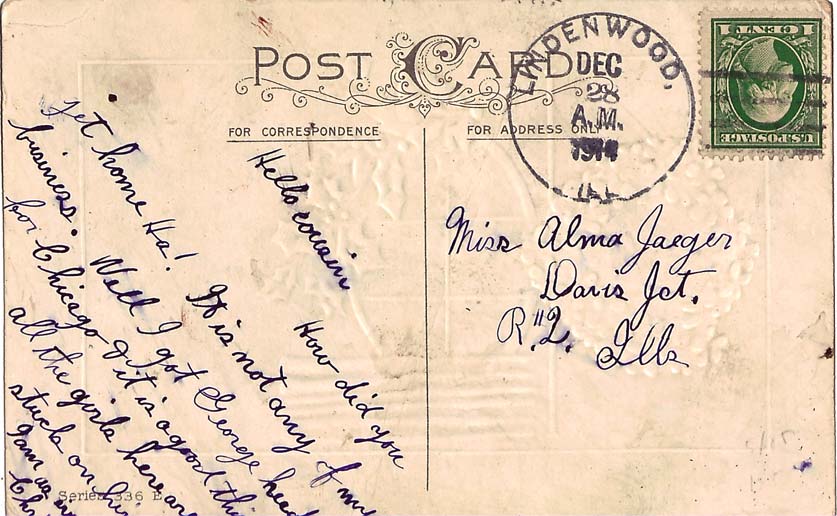 POST CARD
FOR CORRESPONDENCE
FOR ADDRESS ONLY
LINDENWOOD,
DEC
28
A.M.
1914
ILL
1 CENT 1
U.S. POSTAGE
Miss Alma Jaeger
Davis Jct.
R."2. Ills
Hello cousin
How did you
get home Ha! It is not any of my
business. Well I got George head
for Chicago & it is a good thi
all the girls here are
stuck on hi
I am as
Chri
Series 336 E